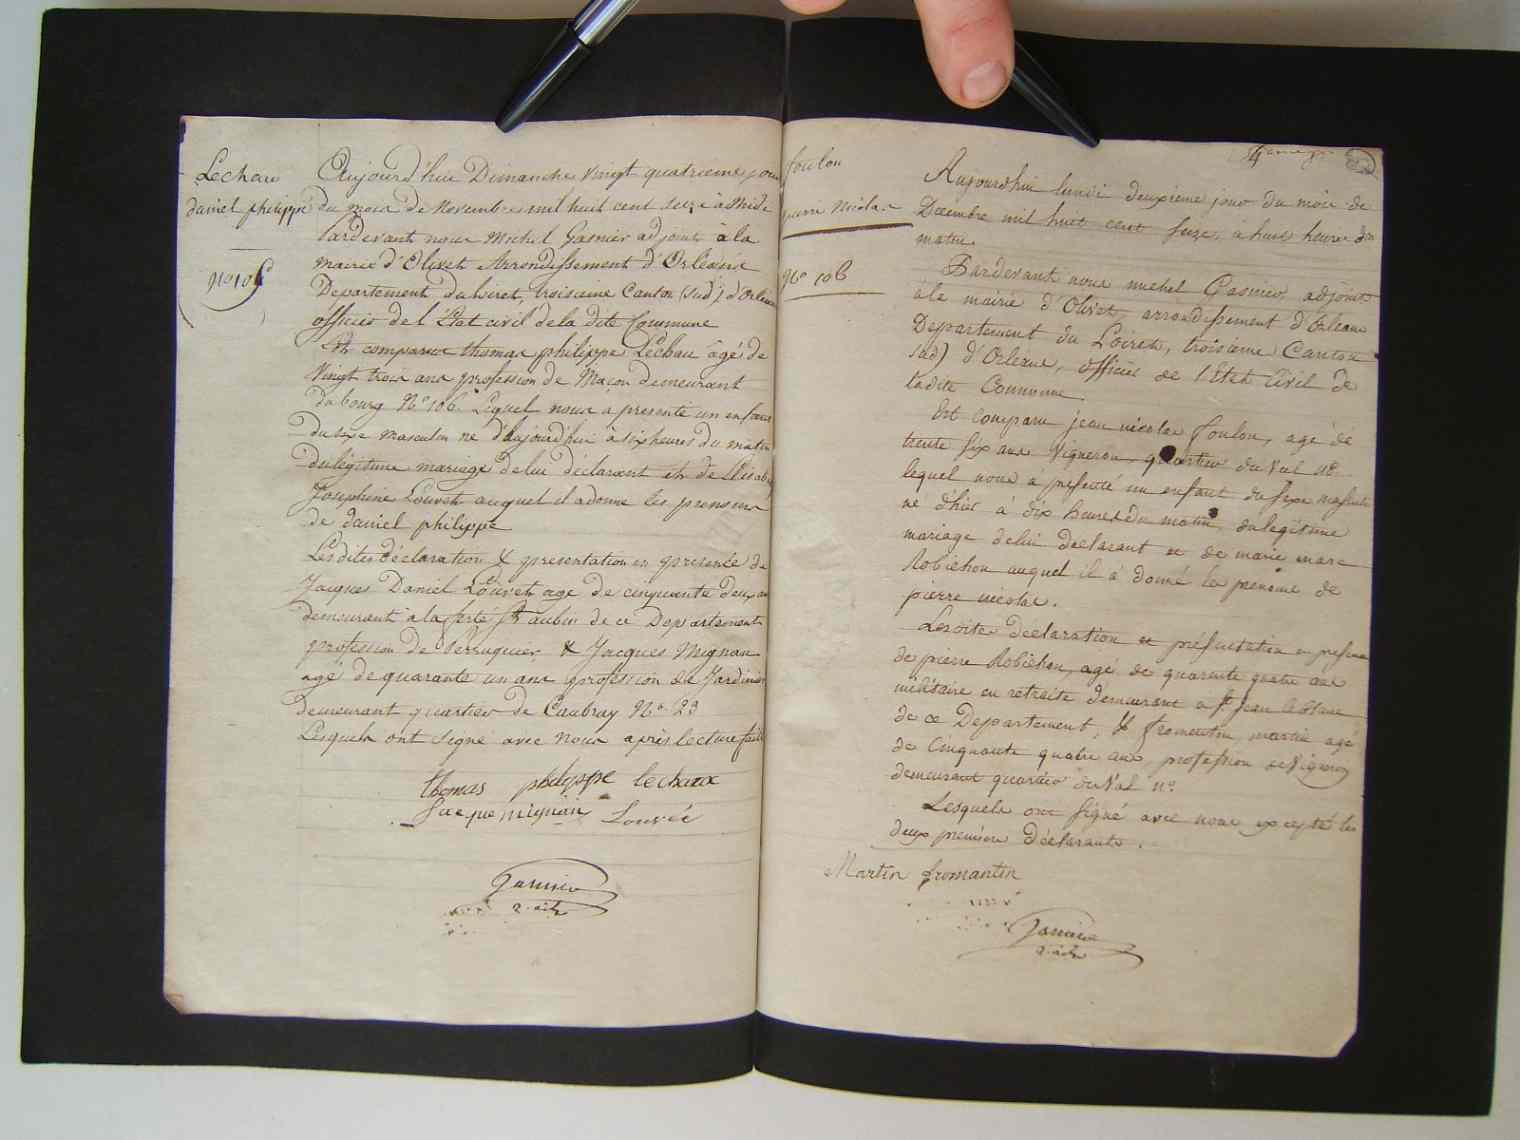 Lechau
daniel philippe
N° 105
Aujourd'hui Dimanche vingt quatrieme jour
du mois de Novembre mil huit cent seize à Midi
Pardevant nous Michel Gasnier adjoint à la
mairie d'Olivet Arrondissement d'Orléans
Departement du Loiret, troisieme Canton (sud) d'Orleans
officier de l'Etat civil de la dite Commune
Est comparu thomas philippe Lechau âgé de
Vingt trois ans profession de Maçon demeurant
du bourg N° 106. Lequel nous a presenté un enfant
du sexe masculin né d'aujourd'hui à six heures du matin
du légitime mariage de lui déclarant et de Elisabeth
Josephine Louvet auquel il a donné les prenoms
de daniel philippe
Les dites déclaration & presentation en presence de
Jacques Daniel Louvet age de cinquante deux ans
demeurant à la ferté St aubin de ce Departement
profession de Perruquier & Jacques Mignan
agé de quarante un ans profession de Jardinier
demeurant quartier de Caubray N° 23
Lesquels ont signé avec nous après lecture faite
thomas philippe lechaux
Jacque mignan Louvée
Gasnier
foulon
pierre Nicolas
N° 106
Aujourdhui lundi deuxième jour du mois de
Decembre mil huit cent seize, à huit heures du
matin.
Pardevant nous michel Gasnier, adjoint
à la mairie d'Olivet, arrondissement d'Orleans
Departement du Loiret, troisieme Canton
sud) d'Orleans, officier de l'Etat Civil de
ladite Commune.
Est comparu jean nicolas foulon, agé de
trente six ans Vigneron quartier du Val n°
lequel nous a presenté un enfant du sexe masculin
né d'hier à dix heures du matin, du legitime
mariage de lui declarant et de marie anne
Robichon auquel il à donné les prenoms de
pierre nicolas.
Lesdites declaration et présentation en presence
de pierre Robichon, agé de quarante quatre ans
militaire en retraite demeurant a St Jean
de ce Departement, & fromentin martin agé
de Cinquante quatre ans, profession de Vigneron
demeurant quartier du Val n°
Lesquels ont signé avec nous excepté les
deux premiers déclarants.
Martin fromantin
Gasnier